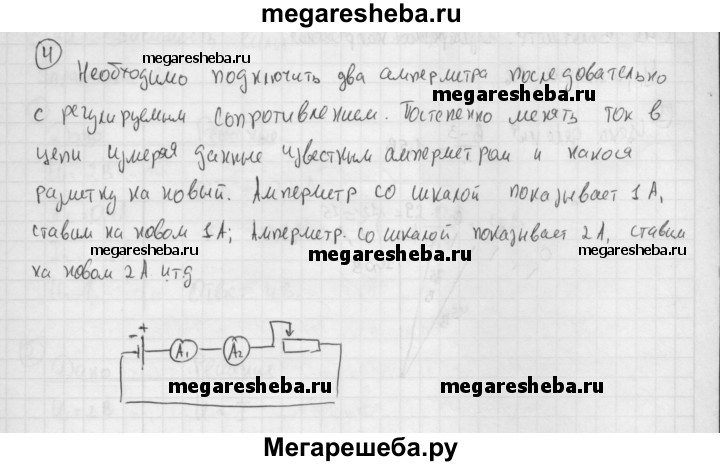 megaresheba.ru
4
megaresheba.ru
Необходимо подключить два амперметра последовательно
megaresheba.ru
с регулируемым сопротивлением. Постепенно менять ток в
цепи измеряя данные известным амперметром и нанося
разметку на новый. Амперметр со шкалой показывает 1 А,
ставим на новом 1 А; Амперметр со шкалой показывает 2 А, ставим
megaresheba.ru
megaresheba.ru
на новом 2 А и.т.д
- +
A1 A2
megaresheba.ru
megaresheba.ru
Мегарешеба.ру